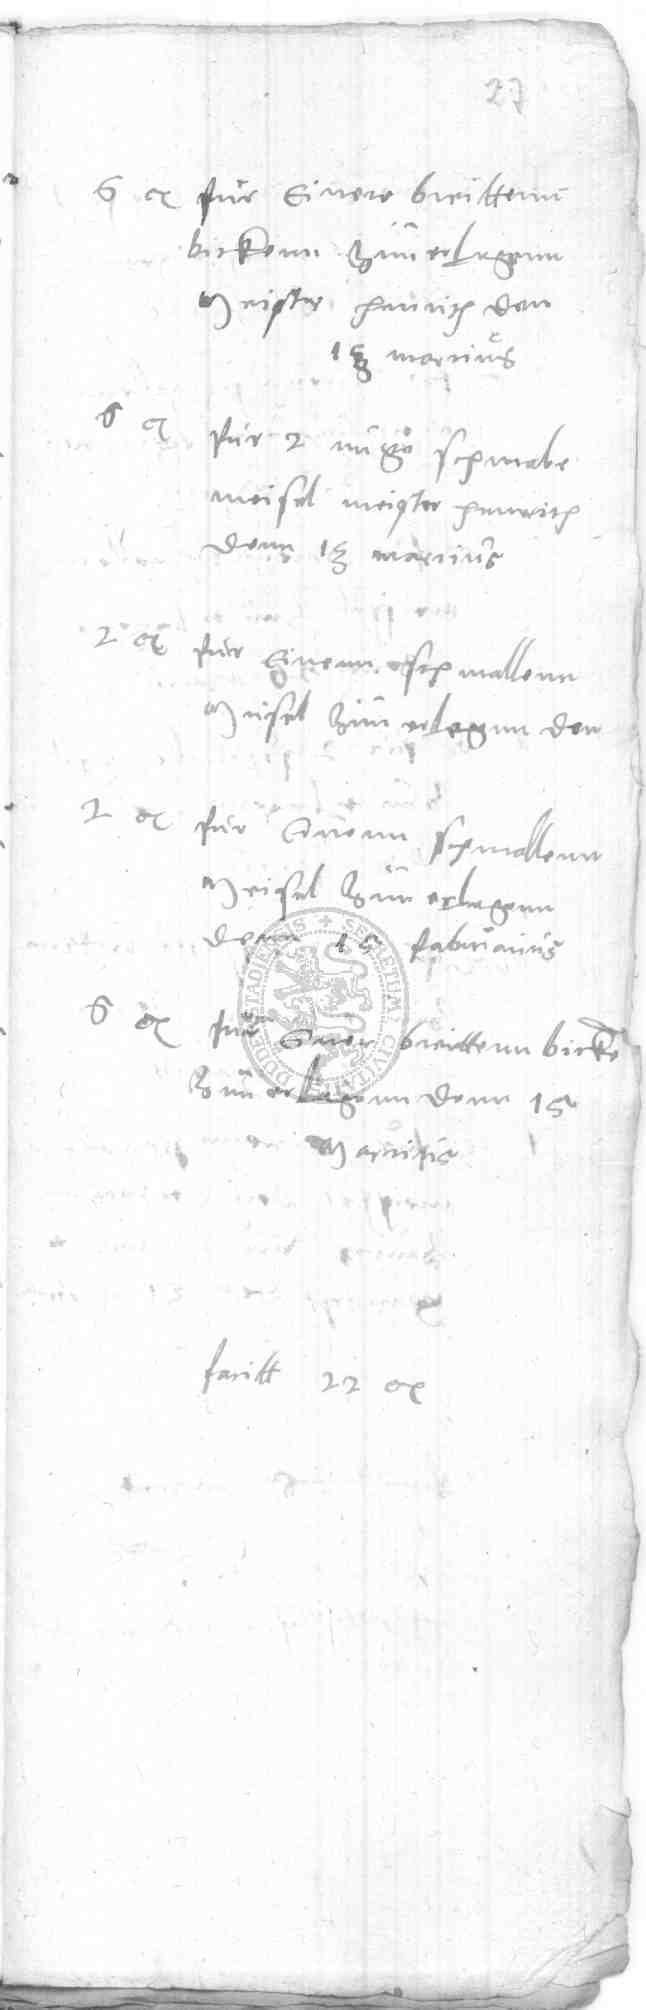 27
6 ₰ für Einere breittenn
bickenn Zům erlegenn
Meister Hinrich den
13 marcius
6 ₰ für 2 nůge schmale
meisel meister Hinrich
denn 13 marcius
2 ₰ für Einenn schmallenn
Meisel Zům erlegenn den
2 ₰ für Einenn schmallenn
Meisel Zům erlegenn
denn 15
6 ₰ für Einer breittenn bicke
Zům erlegenn denn 15
Marcius
facitt 22 ₰
SECRETUM CIVITATIS DUDERSTADIENSIS